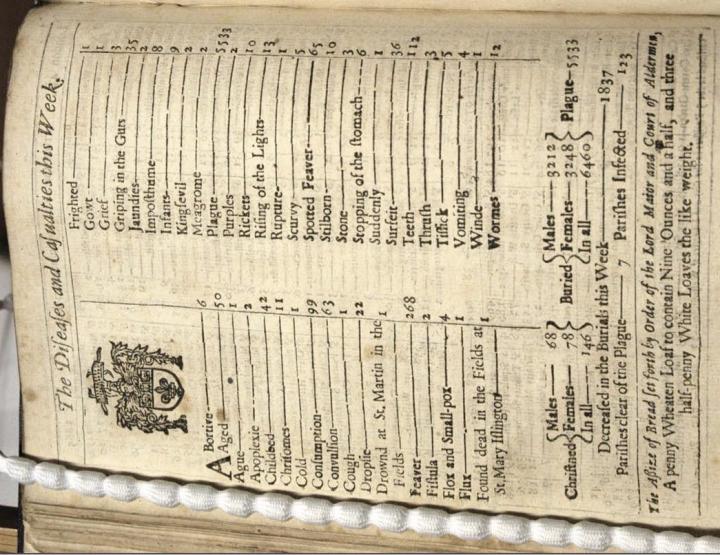 The Diſeaſes and Caſualties this Week.
ABortive 6
Aged 50
Ague 1
Apoplexie 2
Childbed 42
Chriſomes 11
Cold 1
Conſumption 99
Convulſion 63
Cough 1
Dropſie 22
Drownd at St. Martin in the Fields 1
Feaver 268
Fiſtula 2
Flox and Small-pox 4
Flux 1
Found dead in the Fields at 1
St. Mary Iſlington
Frighted 1
Gowt 1
Grief 3
Griping in the Guts 35
Jaundies 2
Impoſthume 8
Infants 9
Kingſevil 2
Meagrome 2
Plague 5533
Purples 2
Rickets 10
Riſing of the Lights 13
Rupture 1
Scurvy 5
Spotted Feaver 65
Stilborn 10
Stone 3
Stopping of the ſtomach 6
Suddenly 1
Surfeit 36
Teeth 112
Thruſh 3
Tiſſick 5
Vomiting 4
Winde 1
Wormes 12
Chriſtned { Males 68 Females 78 In all 146 } Buried { Males 3212 Females 3248 In all 6460 } Plague 5533
Decreaſed in the Burials this Week 1837
Pariſhes clear of the Plague 7 Pariſhes Infected 123
The Aſſize of Bread ſet forth by Order of the Lord Maior and Court of Aldermen,
A penny Wheaten Loaf to contain Nine Ounces and a half, and three
half-penny White Loaves the like weight.